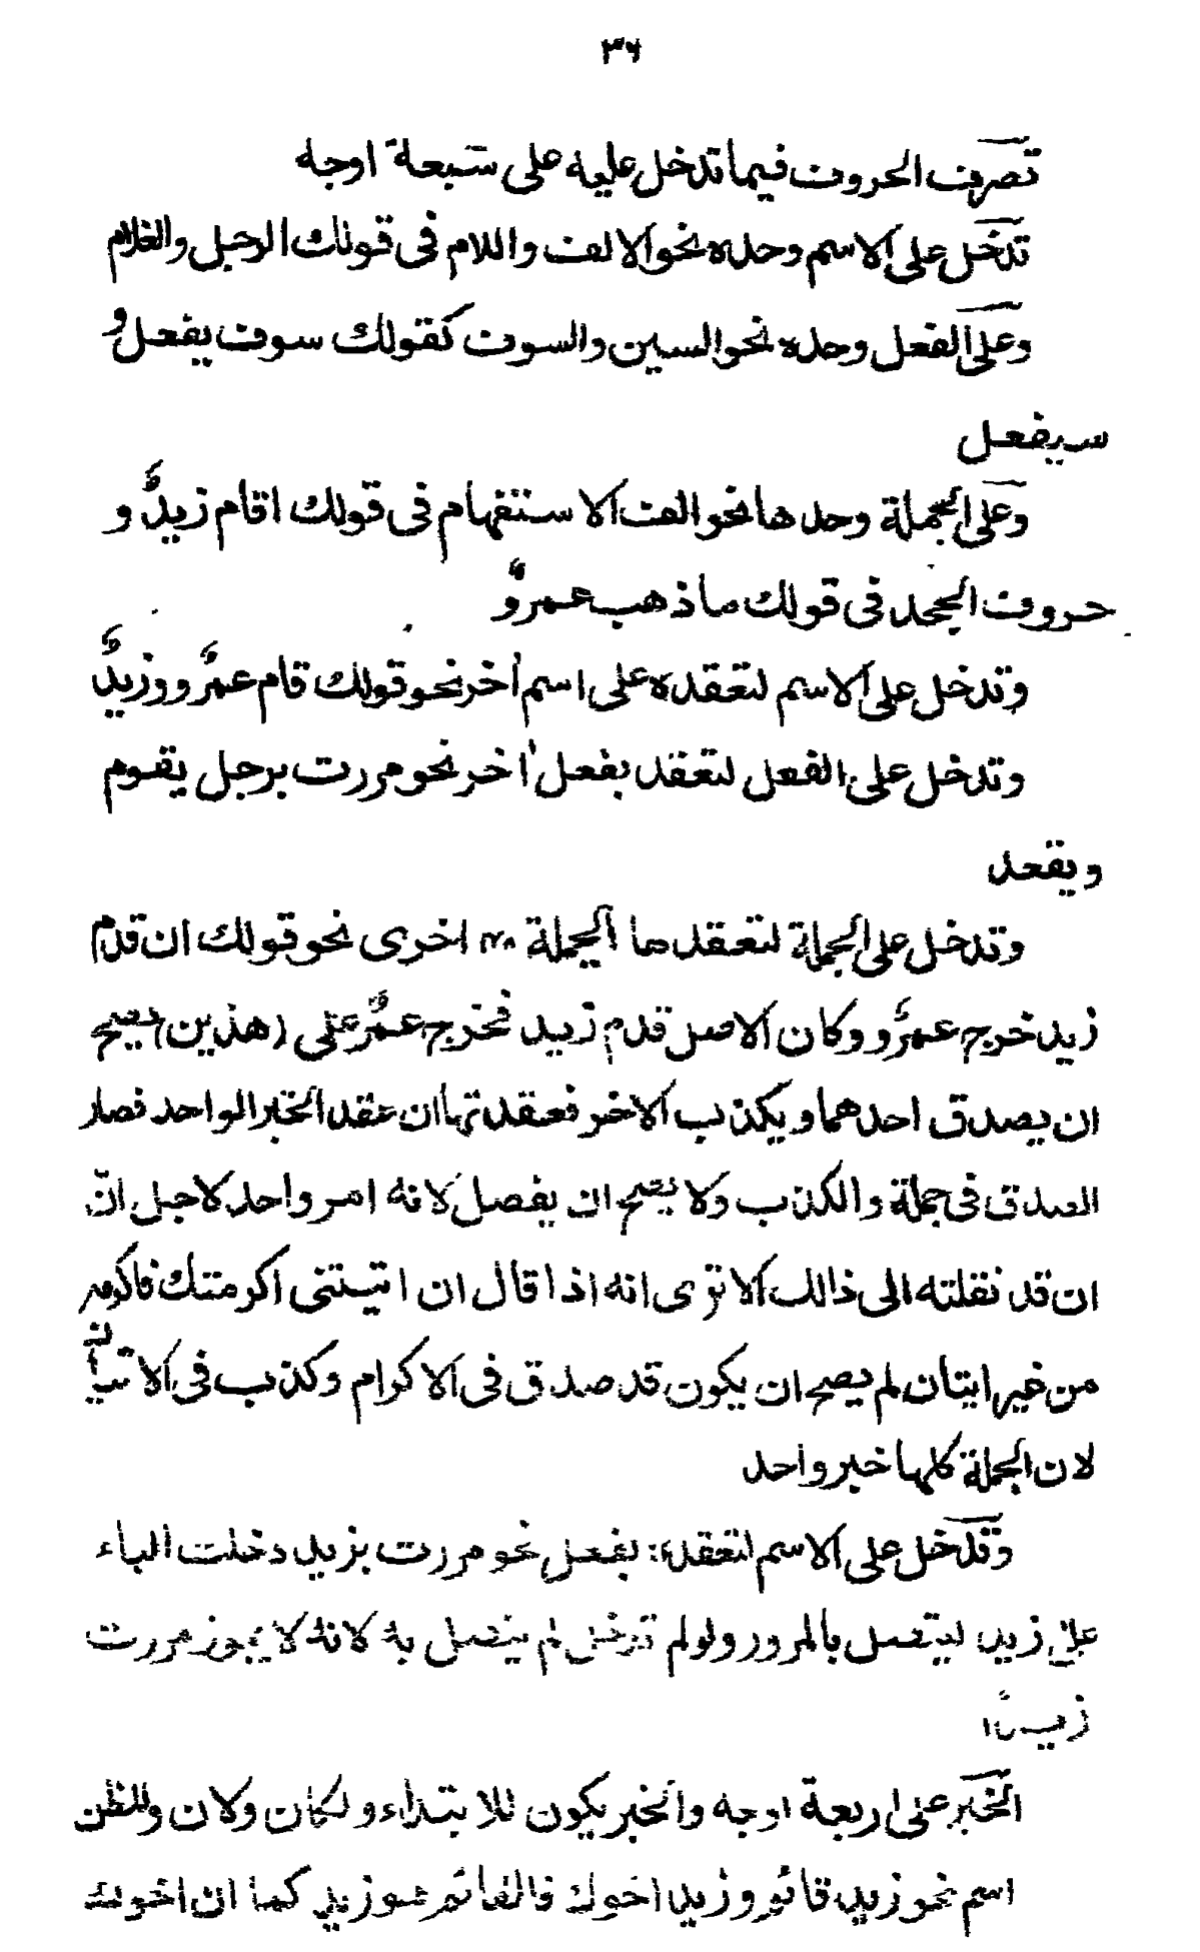 ٣٦
تصرف الحروف فيما تدخل عليه على سبعة اوجه
تدخل على الاسم وحده نحو الالف واللام فى قولك الرجل والغلام
وعلى الفعل وحده نحو السين والسوف كقولك سوف يفعل و
سيفعل
وعلى الجملة وحدها نحو الف الاستفهام فى قولك اقام زيدٌ و
حروف الجحد فى قولك ما ذهب عمروٌ
وتدخل على الاسم لتعقده على اسم اٰخر نحو قولك قام عمرٌو وزيدٌ
وتدخل على الفعل لتعقد بفعل اٰخر نحو مررت برجل يقوم
ويقعد
وتدخل على الجملة لتعقدها الجملة اخرى نحو قولك ان قدم
زيد خرج عمرٌو وكان الاصل قدم زيد فخرج عمرٌ على (هذين) يصح
ان يصدق احدهما ويكذب الاخر فعقد تها ان عقد الخبر الواحد فصار
الصدق فى جملة والكذب ولا يصح ان يفصل لانه امر واحد لاجل انّ
ان قد نقلته الى ذالك الا ترى انه اذا قال ان اتيتنى اكرمتك فاكرم
من غير ايتان لم يصح ان يكون قد صدق فى الاكرام وكذب فى الا
لان الجملة كلها خبر واحد
وقد تدخل على الاسم لتعقده بفعل نحو مررت بزيد دخلت الباء
على زيد ليتصل بالمرور ولو لم تدخل لم يتصل به لانه لا يجوز مررت
زيدًا
الخبر على اربعة اوجه والخبر يكون للابتداء ولكان ولان وللظن
اسم نحو زيد قائم وزيد اخوك فالقائم هو زيد كما ان اخوك